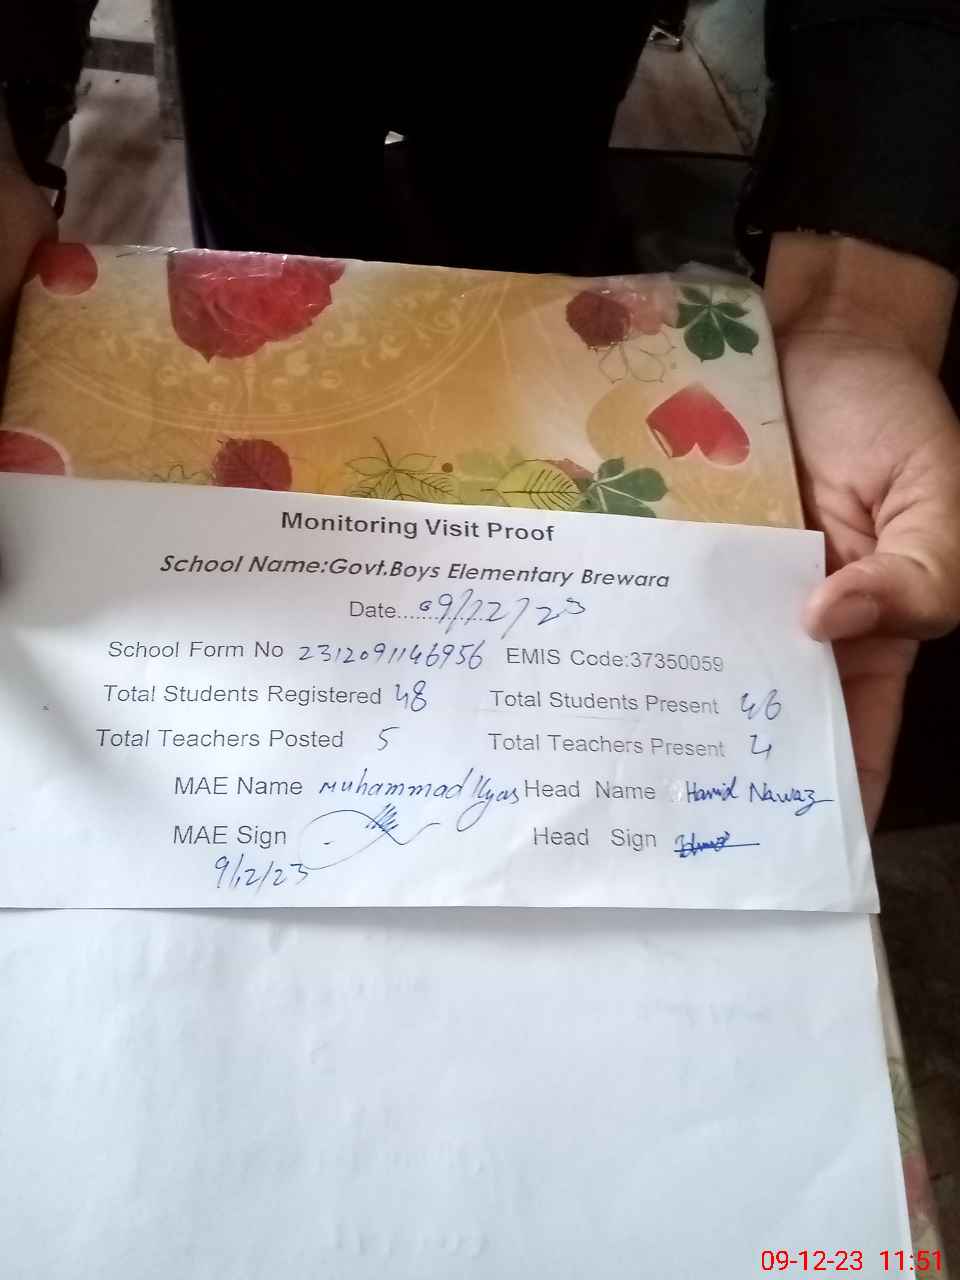 Monitoring Visit Proof
School Name:Govt.Boys Elementary Brewara
Date........... 09/12/23
School Form No 2312091146956 EMIS Code:37350059
Total Students Registered 48 Total Students Present 46
Total Teachers Posted 5 Total Teachers Present 4
MAE Name Muhammad Ilyas Head Name Hamid Nawaz
MAE Sign Head Sign
9/12/23
09-12-23 11:51